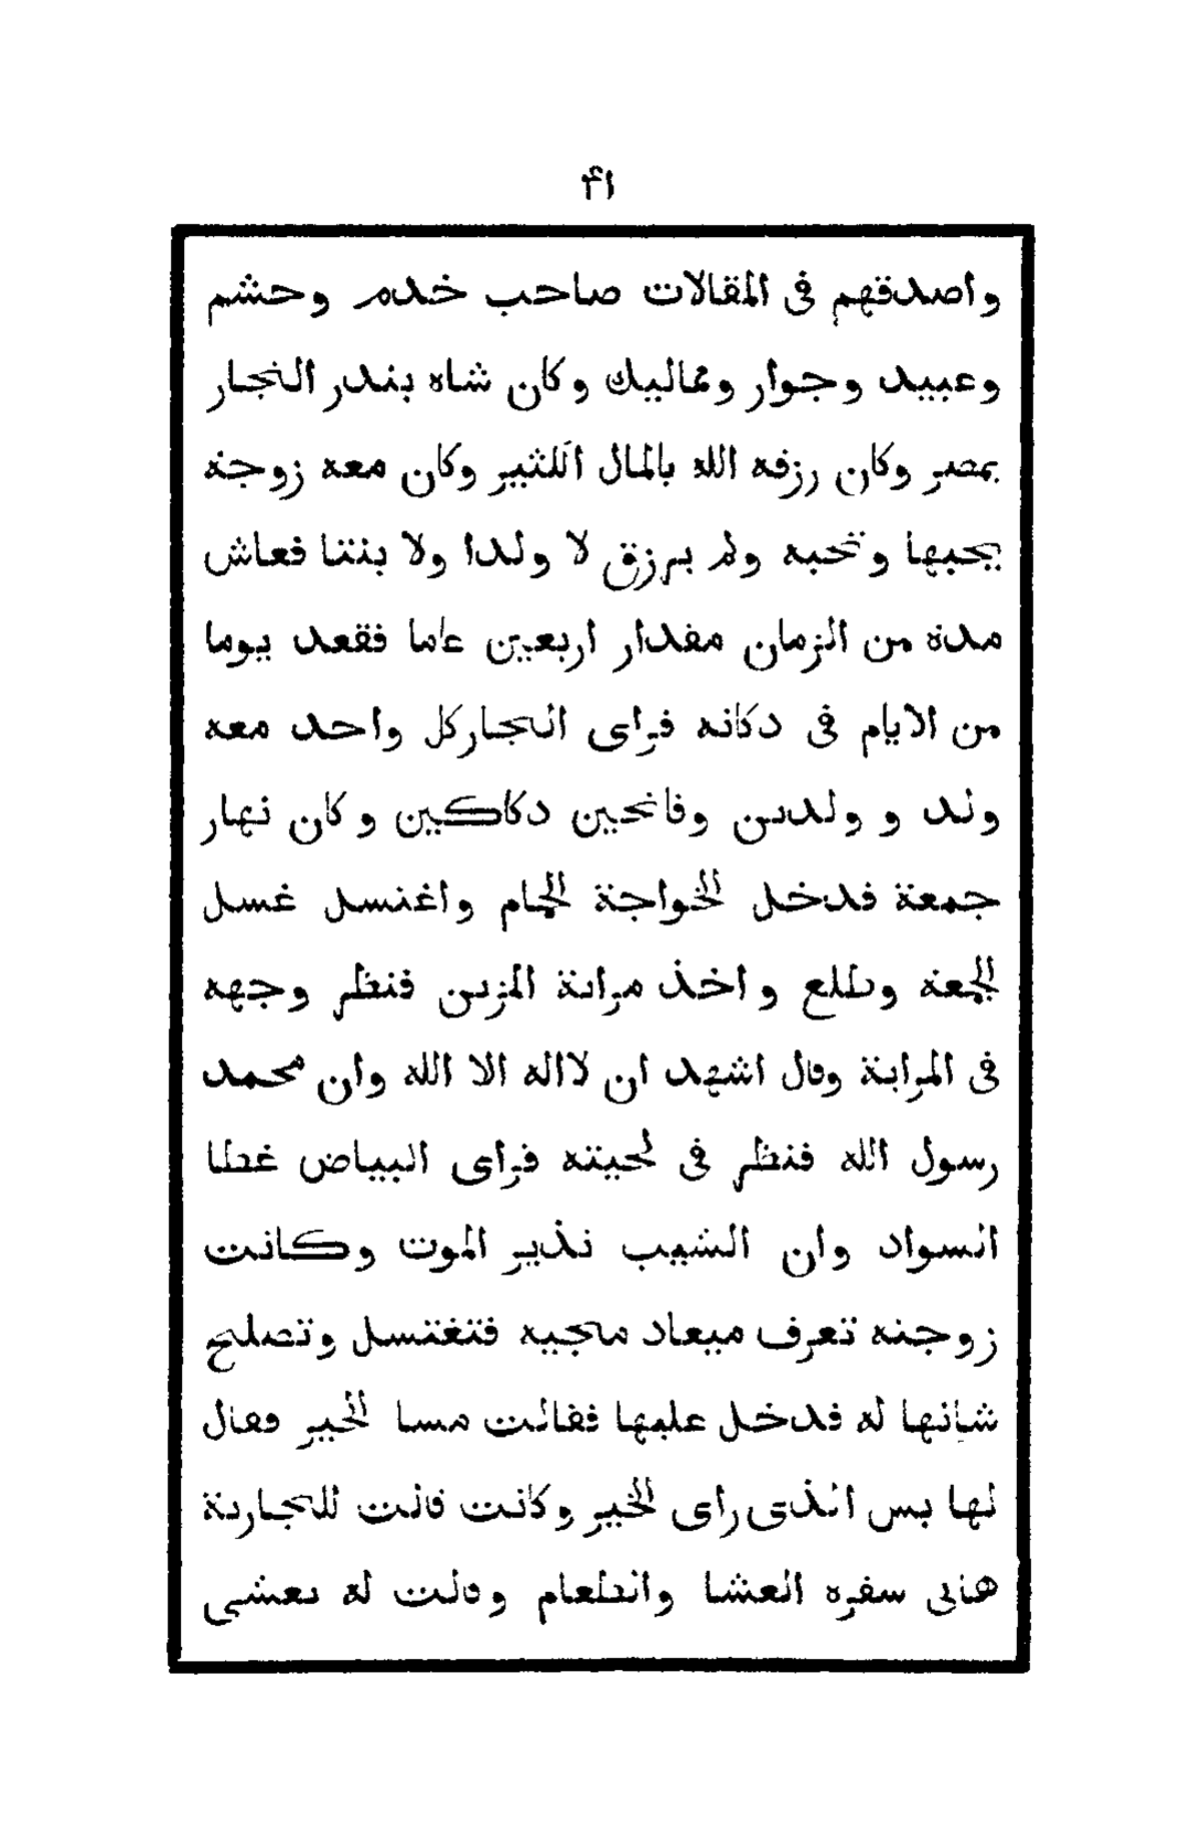 ۴۱
واصدقهم فى المقالات صاحب خدم وحشم
وعبيد وجوار ومماليك وكان شاه بندر التجار
بمصر وكان رزقه الله بالمال الكثير وكان معه زوجة
يحبها وتحبه ولم يرزق لا ولدا ولا بنتا فعاش
مدة من الزمان مقدار اربعين عاما فقعد يوما
من الايام فى دكانه فراى التجار كل واحد معه
ولد و ولدين وفاتحين دكاكين وكان نهار
جمعة فدخل الخواجة الحمام واغتسل غسل
الجمعة وطلع واخذ مراية المزين فنظر وجهه
فى المراية وقال اشهد ان لااله الا الله وان محمد
رسول الله فنظر فى لحيته فراى البياض غطا
السواد وان الشيب نذير الموت وكانت
زوجته تعرف ميعاد مجيه فتغتسل وتصلح
شانها له فدخل عليها فقالت مسا الخير فقال
لها بس الذى راى الخير وكانت قالت للجارية
هاتى سفره العشا والطعام وقالت له تعشى